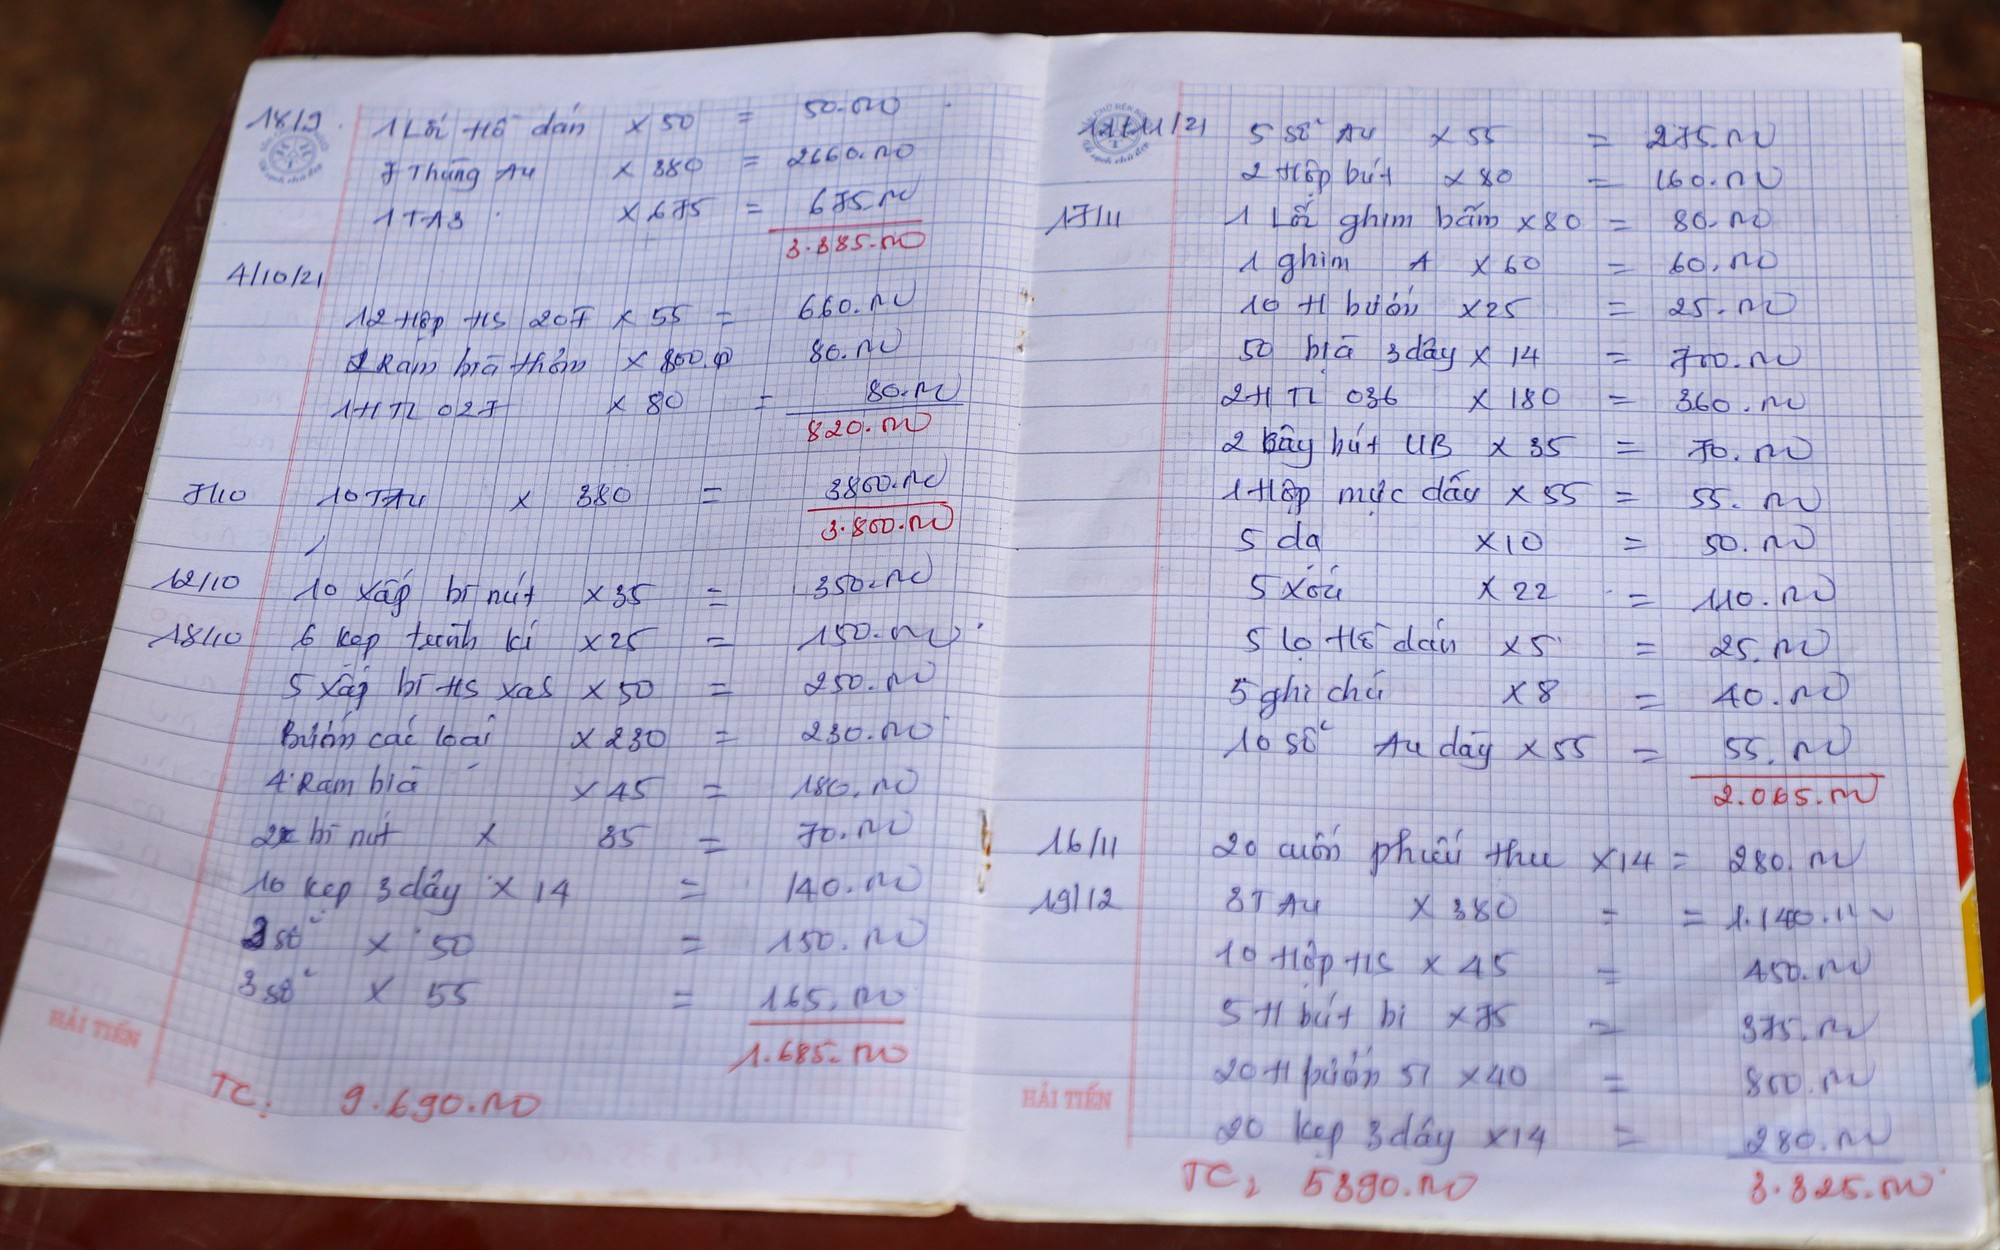 18/9. 1 Lối Hồ dán x 50 = 50.000
7 Thùng A4 x 380 = 2660.000
1 TA3 x 675 = 675.000
3.385.000
4/10/21
12 Hộp HS 207 x 55 = 660.000
Ram bìa thơm x 800.0 80.000
1 H TL 027 x 80 = 80.000
820.000
7/10 10 TA4 x 380 = 3800.000
3.800.000
12/10 10 xấp bì nút x 35 = 350.000
18/10 6 kẹp trình kí x 25 = 150.000
5 xấp bì HS xas x 50 = 250.000
Bướm các loại x 230 = 230.000
4 Ram bìa x 45 = 180.000
2x bì nút x 35 = 70.000
10 kẹp 3 dây x 14 = 140.000
3 sổ x 50 = 150.000
3 sổ x 55 = 165.000
1.685.000
HẢI TIẾN
TC: 9.690.000
/11/21 5 sổ A4 x 55 = 275.000
2 Hộp bút x 80 = 160.000
17/11 1 Lối ghim bấm x 80 = 80.000
1 ghim A x 60 = 60.000
10 H bướm x 25 = 25.000
50 bìa 3 dây x 14 = 700.000
2 H TL 036 x 180 = 360.000
2 cây bút UB x 35 = 70.000
1 Hộp mực dấu x 55 = 55.000
5 dạ x 10 = 50.000
5 xóa x 22 = 110.000
5 lọ Hồ dán x 5 = 25.000
5 ghi chú x 8 = 40.000
10 sổ A4 dày x 55 = 55.000
2.065.000
16/11 20 cuốn phiếu thu x 14 = 280.000
19/12 3T A4 x 380 = = 1.140.000
10 Hộp HS x 45 = 450.000
5 H bút bi x 75 = 375.000
20 H bướm 51 x 40 = 800.000
20 kẹp 3 dây x 14 = 280.000
HẢI TIẾN
TC: 5390.000 3.325.000